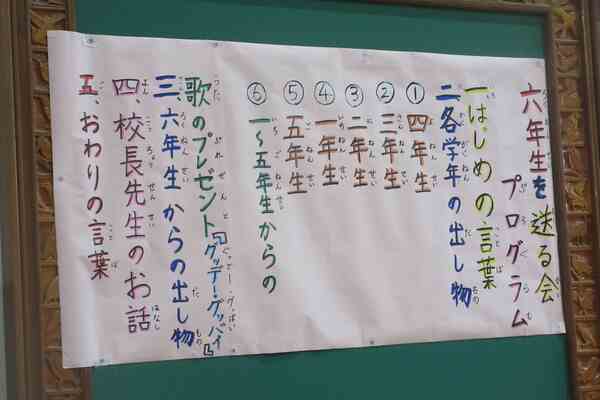 六年生を送る会
プログラム
一はじめの言葉
二、各学年の出し物
① 四年生
② 三年生
③ 二年生
④ 一年生
⑤ 五年生
⑥ 一～五年生からの
歌のプレゼント『グッデー・グッバイ』
三、六年生からの出し物
四、校長先生のお話
五、おわりの言葉